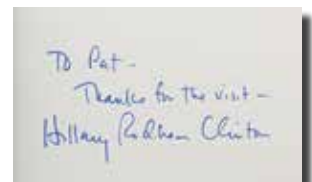 To Pat -
Thanks for the visit -
Hillary Rodham Clinton